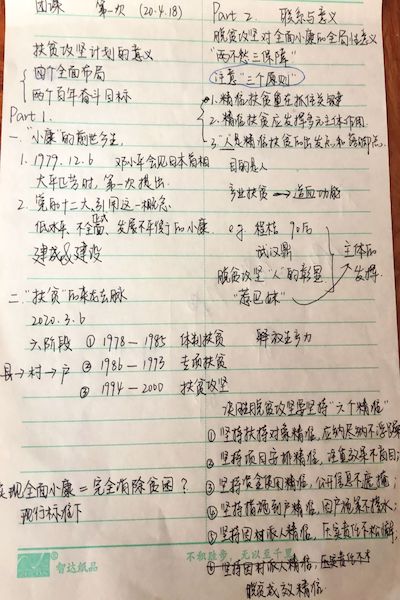 团课 第一次 (20.4.18)
扶贫攻坚计划的意义
四个全面布局
两个百年奋斗目标
Part 1.
一."小康"的前世今生
1. 1979.12.6 邓小平会见日本首相
大平正芳时,第一次提出.
2. 党的十二大,引用这一概念
低水平、不全面、发展不平衡的小康
建成&建设
二."扶贫"的来龙去脉
2020.3.6
六阶段 ① 1978-1985 体制扶贫 解放生产力
县→村→户 ② 1986-1993 专项扶贫
③ 1994-2000 扶贫攻坚
实现全面小康=完全消除贫困?
现行标准下
Part 2. 联系与意义
脱贫攻坚对全面小康的全局性意义
"两不愁三保障"
注意"三个原则"
1. 精准扶贫重在抓住关键
2. 精准扶贫应发挥多元主体作用
3. "人是精准扶贫的出发点和落脚点.
目的是人
产业扶贫 → 造血功能
e.g. 90后
武汉鼎
脱贫攻坚"人"的彰显
主体的
发挥.
脱贫攻坚要坚持"六个精准"
① 坚持扶持对象精准,应纳尽纳不
② 坚持项目安排精准,
③ 坚持资金使用精准,公开信息不遮掩;
④ 坚持措施到户精准,因户施策不
⑤ 坚持因村派人精准,压实责任不松懈;
⑥ 坚持因村派人精准,压实责任不
脱贫成效精准
智达纸品
不积跬步,无以至千里